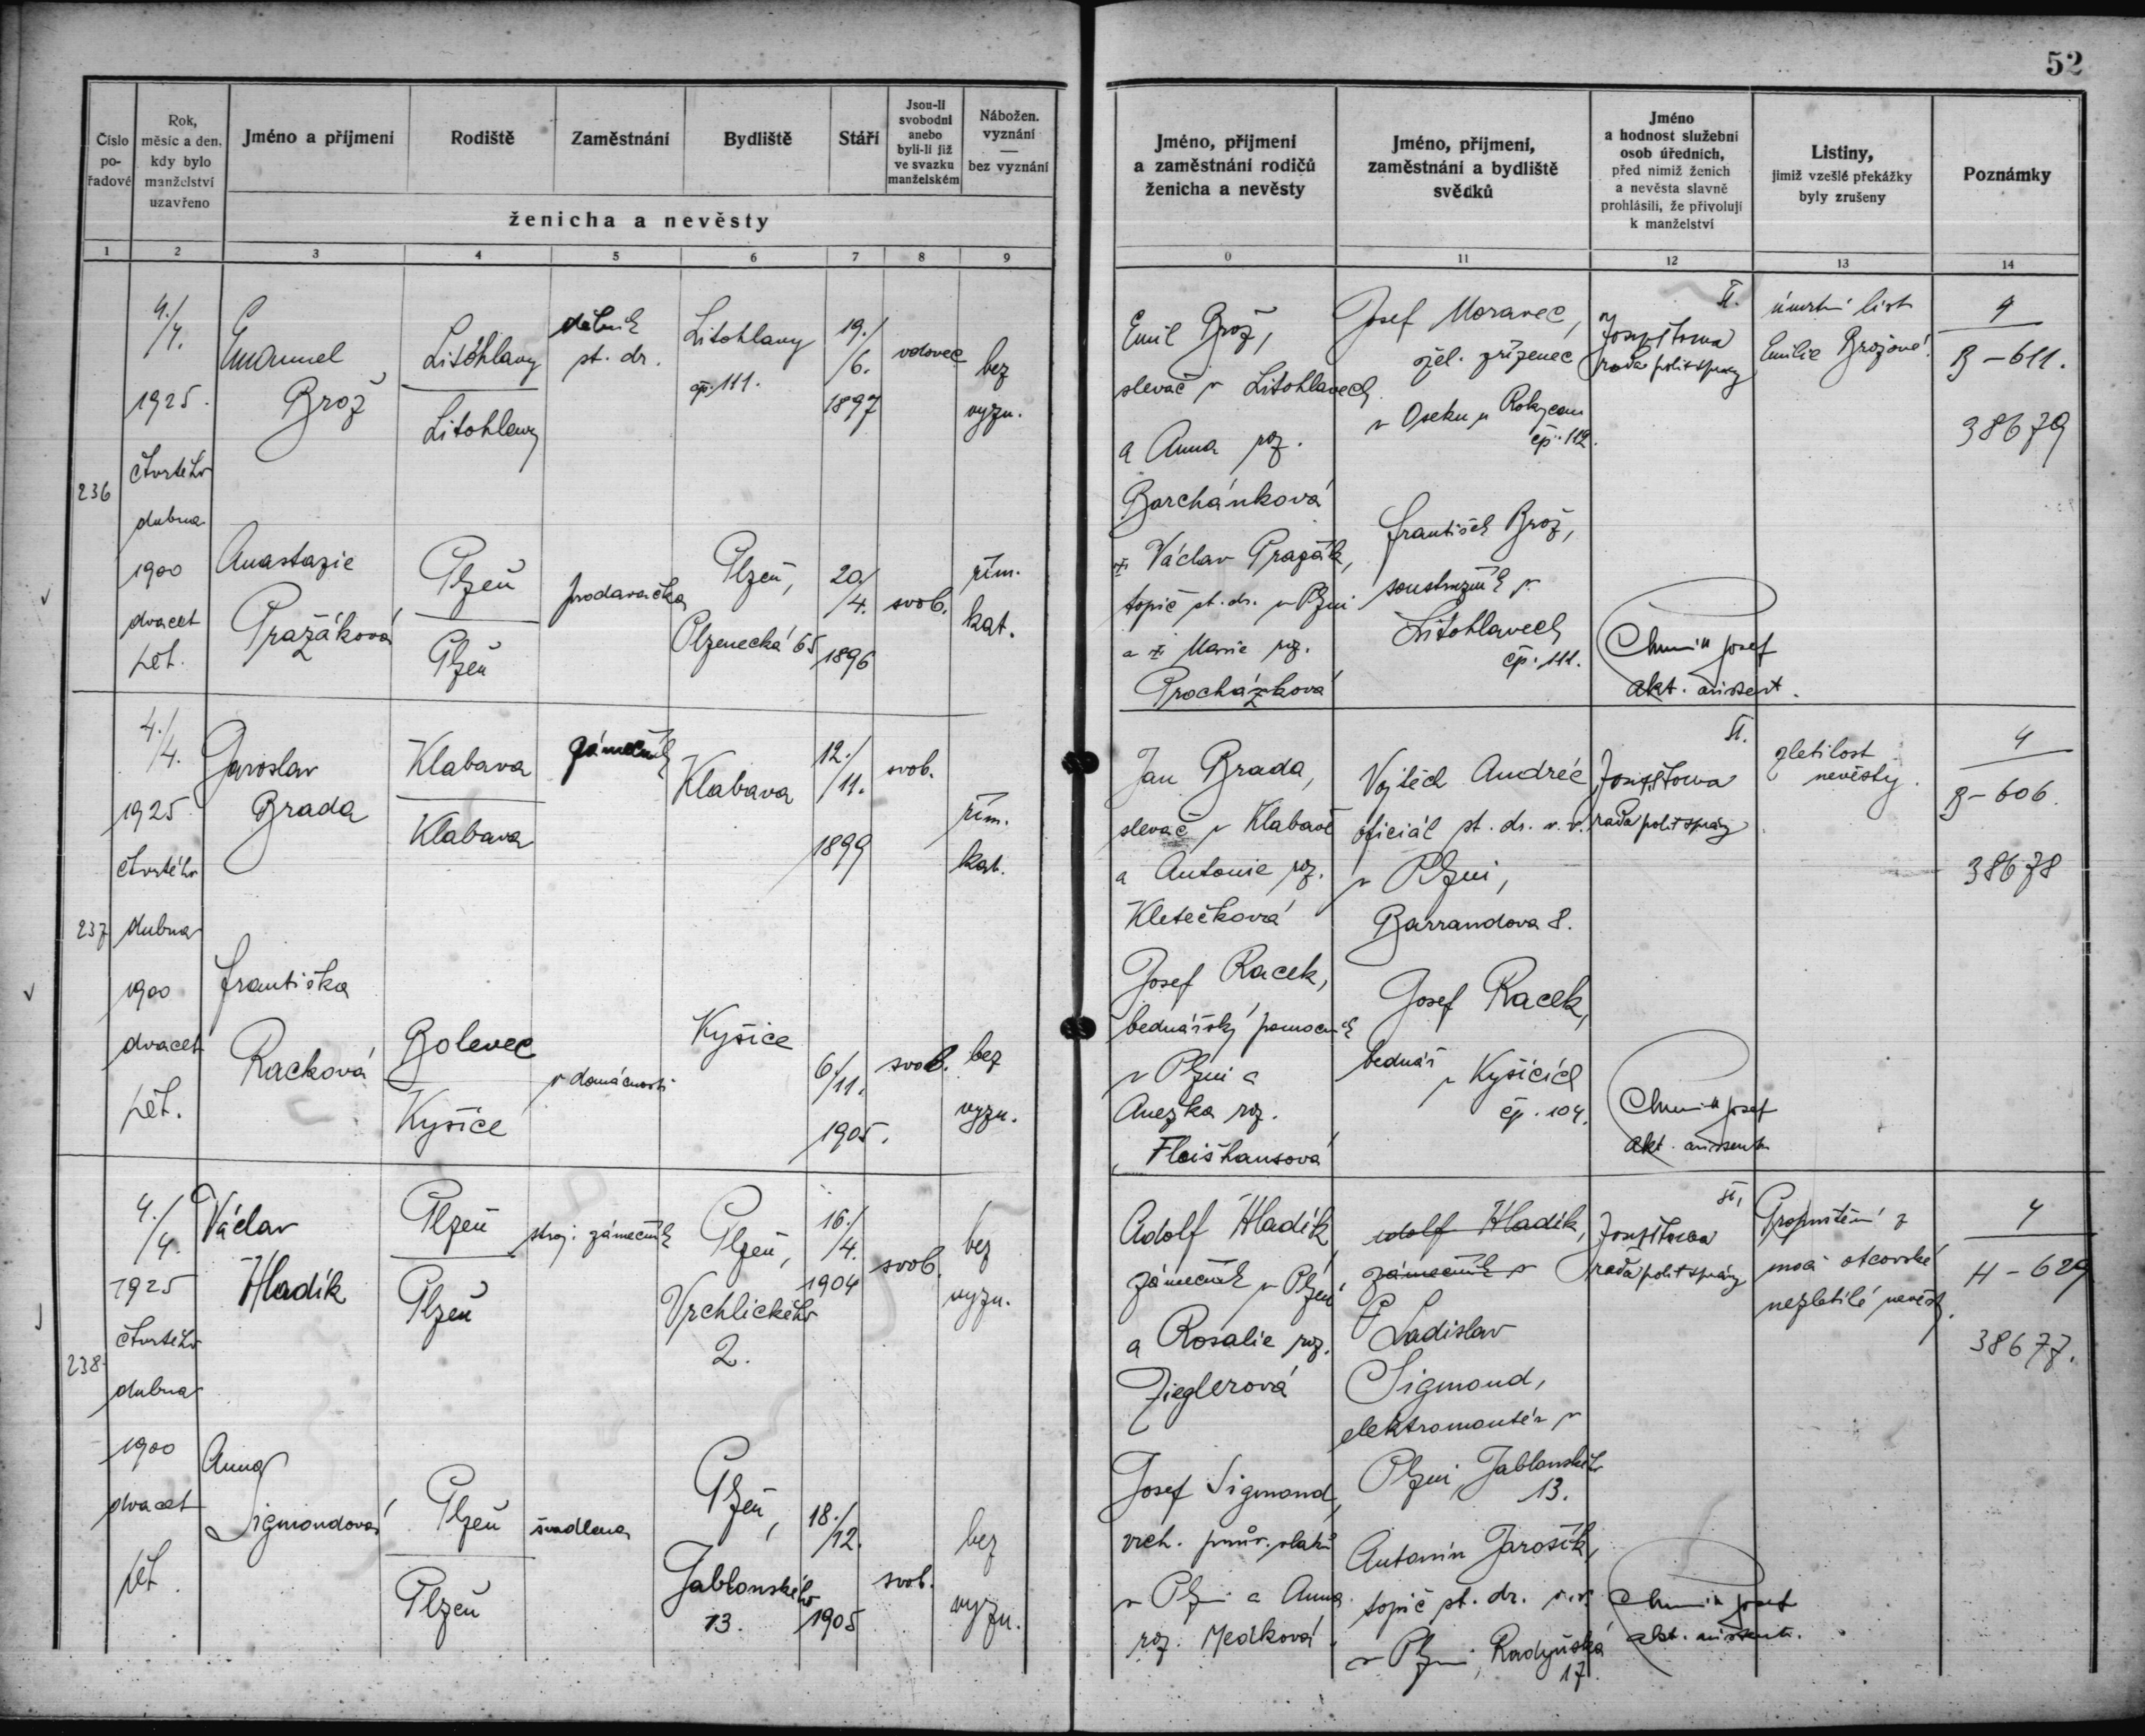 52
Číslo pořadové
Rok, měsíc a den, kdy bylo manželství uzavřeno
Jméno a příjmení
Rodiště
Zaměstnání
Bydliště
Stáří
Jsou-li svobodni anebo byli-li již ve svazku manželském
Nábožen. vyznání — bez vyznání
ženicha a nevěsty
Jméno, příjmení a zaměstnání rodičů ženicha a nevěsty
Jméno, příjmení, zaměstnání a bydliště svědků
Jméno a hodnost služební osob úředních, před nimiž ženich a nevěsta slavně prohlásili, že přivolují k manželství
Listiny, jimiž vzešlé překážky byly zrušeny
Poznámky
1 2 3 4 5 6 7 8 9
0 11 12 13 14
236
4./4.
1925.
čtvrtého
dubna
1900
dvacet
pět.
Emanuel
Brož
Litohlavy
Litohlavy
dělník
st. dr.
Litohlavy
čp. 111.
19./6.
1897
vdovec
bez
vyzn.
Anastazie
Pražáková
Plzeň
Plzeň
prodavačka
Plzeň,
Plzenecká 65
20./4.
1896
svob.
řím.
kat.
Emil Brož,
slevač v Litohlavech
a Anna roz.
Barchánková
Václav Pražák,
topič st. dr. v Plzni
a Marie roz.
Procházková
Josef Moravec,
žel. zřízenec
v Oseku u Rokycan
čp. 112.
František Brož,
soustružník v
Litohlavech
čp. 111.
rada polit správy
Josef
akt. assistent.
úmrtní list
Emilie Brožové.
4
B-611.
38679
237
4./4.
1925
čtvrtého
dubna
1900
dvacet
pět.
Jaroslav
Brada
Klabava
Klabava
zámečník
Klabava
12./11.
1899
svob.
řím.
kat.
Františka
Racková
Bolevec
Kyšice
v domácnosti
Kyšice
6./11.
1905.
svob.
bez
vyzn.
Jan Brada,
slevač v Klabavě
a Antonie roz.
Kletečková
Josef Racek,
bednářský pomocník
v Plzni a
Anežka roz.
Fleišhansová
Vojtěch Andréé
oficiál st. dr. v. v.
v Plzni,
Barrandova 8.
Josef Racek,
bednář
v Kyšicích
čp. 104.
rada polit správy
Josef
akt. assistent
zletilost
nevěsty.
4
B-606.
38678
238
4./4.
1925
čtvrtého
dubna
1900
dvacet
pět.
Václav
Hladík
Plzeň
Plzeň
stroj. zámečník
Plzeň,
Vrchlického
2.
16./4.
1904
svob.
bez
vyzn.
Anna
Sigmondová
Plzeň
Plzeň
švadlena
Plzeň,
Jablonského
13.
18./12.
1905
svob.
bez
vyzn.
Adolf Hladík
zámečník v Plzni,
a Rosalie roz.
Zieglerová
Josef Sigmond,
vrch. prův. vlaků
v Plzni a Anna
roz. Medková.
Adolf Hladík,
zámečník v
Ladislav
Sigmond,
elektromontér v
Plzni, Jablonského
13.
Antonín Jarošík,
topič st. dr. v. v.
v Plzni, Radyňská
17.
rada polit správy
Josef
akt. assistent.
Propuštění z
moci otcovské
nezletilé nevěsty.
4
H-629
38677.